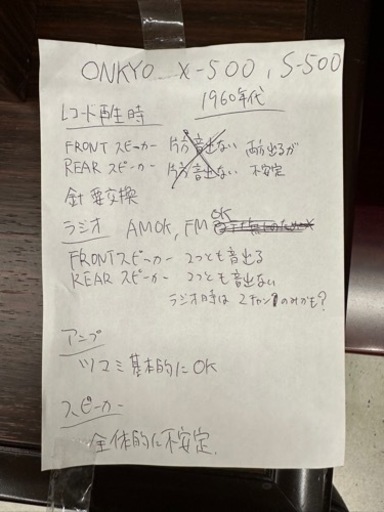 ONKYO X-500, S-500
1960年代
レコード再生時
FRONTスピーカー 片方音出ない 両方出るが
REARスピーカー 片方音出ない 不安定
針要交換
ラジオ AMOK, FM OK
FRONTスピーカー 2つとも音出る
REARスピーカー 2つとも音出ない
ラジオ時は2チャンのみかも?
アンプ
ツマミ基本的にOK
スピーカー
全体的に不安定.